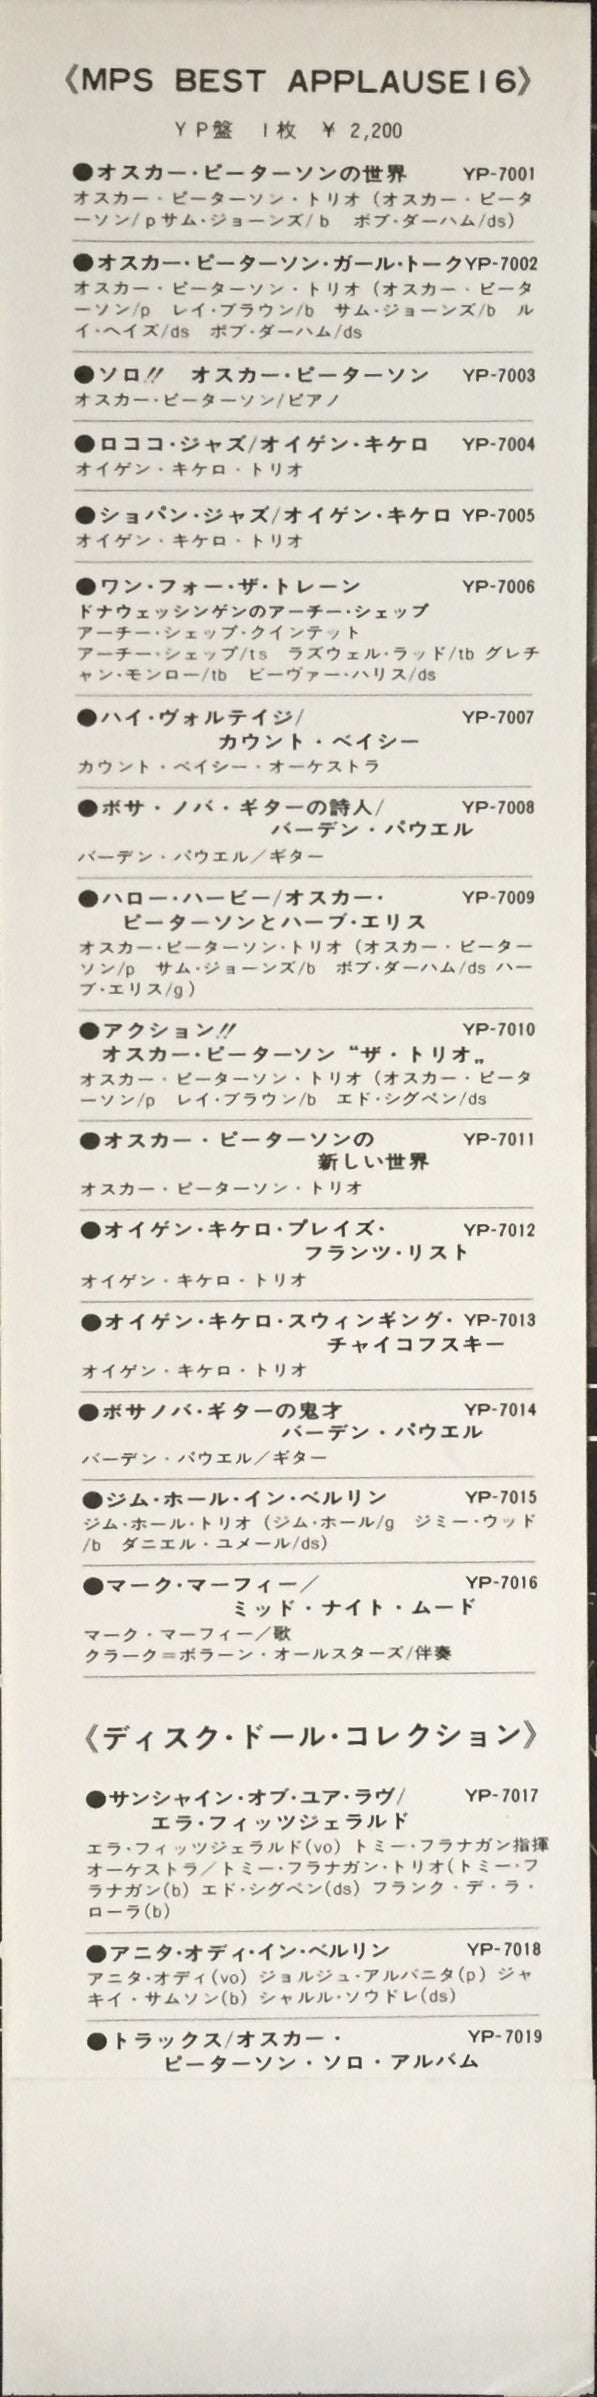 《MPS BEST APPLAUSE16》
YP盤 1枚 ¥ 2,200
●オスカー・ピーターソンの世界 YP-7001
オスカー・ピーターソン・トリオ（オスカー・ピータ
ーソン/pサム・ジョーンズ/b ボブ・ダーハム/ds）
●オスカー・ピーターソン・ガール・トークYP-7002
オスカー・ピーターソン・トリオ（オスカー・ピータ
ーソン/p レイ・ブラウン/b サム・ジョーンズ/b ル
イ・ヘイズ/ds ボブ・ダーハム/ds
●ソロ!! オスカー・ピーターソン YP-7003
オスカー・ピーターソン/ピアノ
●ロココ・ジャズ/オイゲン・キケロ YP-7004
オイゲン・キケロ・トリオ
●ショパン・ジャズ/オイゲン・キケロ YP-7005
オイゲン・キケロ・トリオ
●ワン・フォー・ザ・トレーン YP-7006
ドナウェッシンゲンのアーチー・シェップ
アーチー・シェップ・クインテット
アーチー・シェップ/ts ラズウェル・ラッド/tb グレチ
ャン・モンロー/tb ビーヴァー・ハリス/ds
●ハイ・ヴォルテイジ/ YP-7007
カウント・ベイシー
カウント・ベイシー・オーケストラ
●ボサ・ノバ・ギターの詩人/ YP-7008
バーデン・パウエル
バーデン・パウエル／ギター
●ハロー・ハービー/オスカー・ YP-7009
ピーターソンとハーブ・エリス
オスカー・ピーターソン・トリオ（オスカー・ピーター
ソン/p サム・ジョーンズ/b ボブ・ダーハム/ds ハー
ブ・エリス/g）
●アクション!! YP-7010
オスカー・ピーターソン“ザ・トリオ„
オスカー・ピーターソン・トリオ（オスカー・ピータ
ーソン/p レイ・ブラウン/b エド・シグペン/ds
●オスカー・ピーターソンの YP-7011
新しい世界
オスカー・ピーターソン・トリオ
●オイゲン・キケロ・プレイズ・ YP-7012
フランツ・リスト
オイゲン・キケロ・トリオ
●オイゲン・キケロ・スウィンギング・ YP-7013
チャイコフスキー
オイゲン・キケロ・トリオ
●ボサノバ・ギターの鬼才 YP-7014
バーデン・パウエル
バーデン・パウエル／ギター
●ジム・ホール・イン・ベルリン YP-7015
ジム・ホール・トリオ（ジム・ホール/g ジミー・ウッド
/b ダニエル・ユメール/ds）
●マーク・マーフィー／ YP-7016
ミッド・ナイト・ムード
マーク・マーフィー／歌
クラーク＝ボラーン・オールスターズ/伴奏
《ディスク・ドール・コレクション》
●サンシャイン・オブ・ユア・ラヴ/ YP-7017
エラ・フィッツジェラルド
エラ・フィッツジェラルド(vo) トミー・フラナガン指揮
オーケストラ／トミー・フラナガン・トリオ(トミー・フ
ラナガン(b) エド・シグペン(ds) フランク・デ・ラ・
ローラ(b)
●アニタ・オディ・イン・ベルリン YP-7018
アニタ・オディ(vo) ジョルジュ・アルバニタ(p) ジャ
キイ・サムソン(b) シャルル・ソウドレ(ds)
●トラックス/オスカー・ YP-7019
ピーターソン・ソロ・アルバム